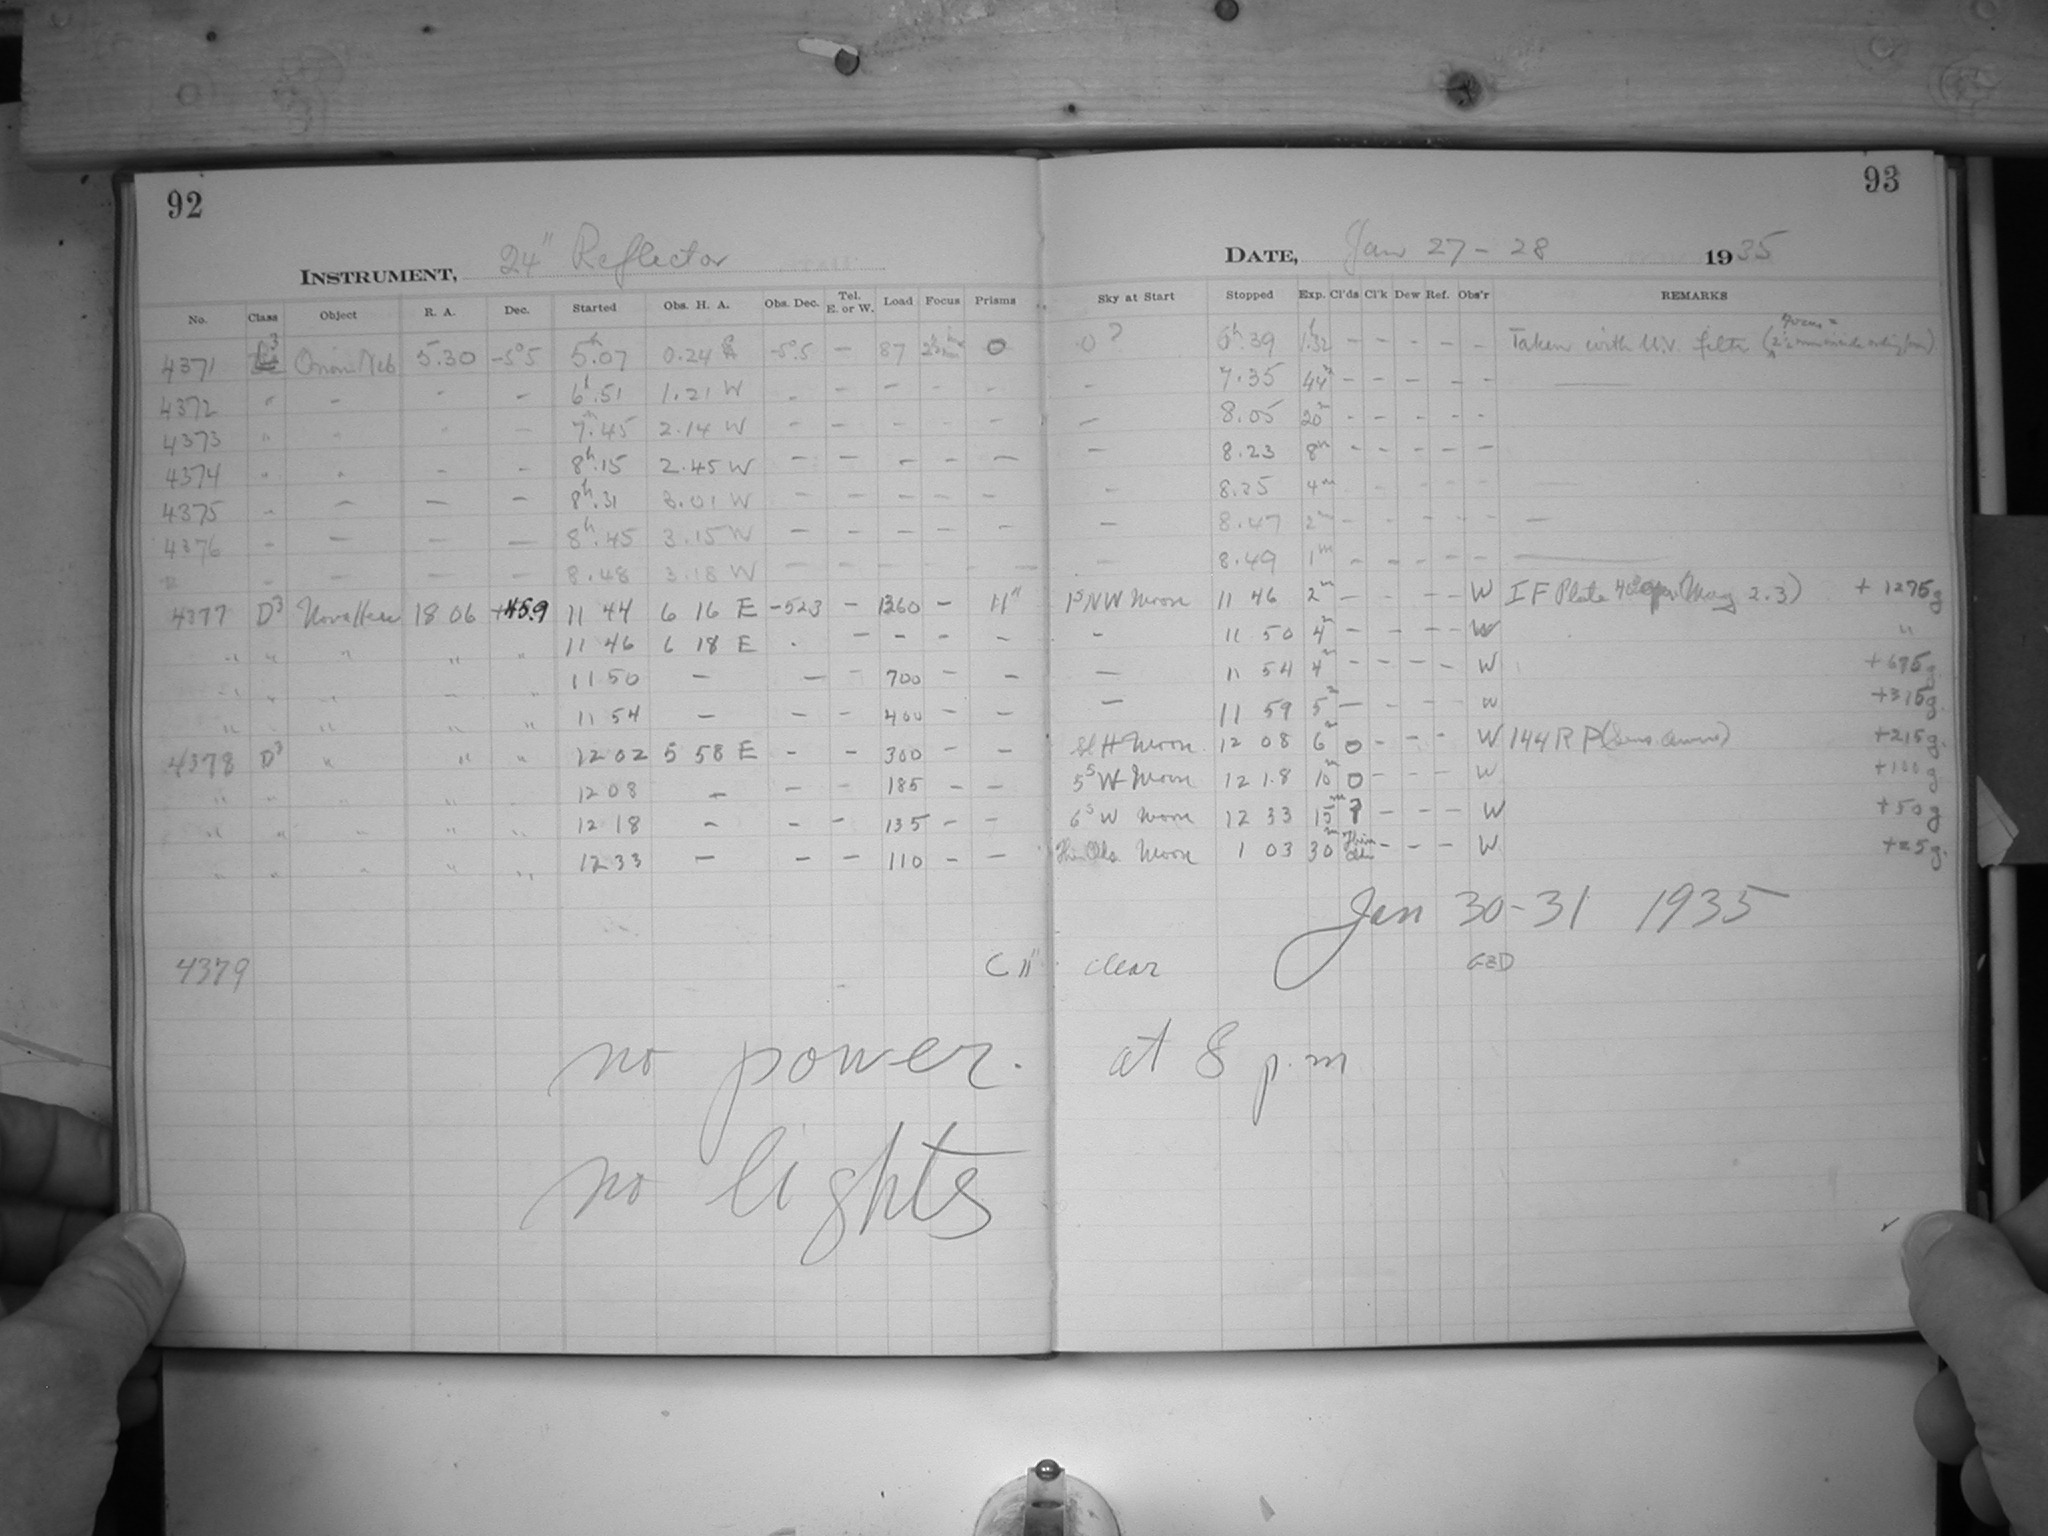 92
93
INSTRUMENT, 24" Reflector
DATE, Jan 27 - 28 1935
No. Class Object R. A. Dec. Started Obs. H. A. Obs. Dec. Tel. E. or W. Load Focus Prisms Sky at Start Stopped Exp. Cl'ds Cl'k Dew Ref. Obs'r REMARKS
4371 Orion Neb 5.30 -5°5 5h.07 0.24 -5°.5 - 87 0 0? 6h.39 1h32 - - - - - Taken with U.V. filter
4372 " - - - 6h.51 1.21 W - - - - - - 7.35 44m - - - - -
4373 " - - - 7h.45 2.14 W - - - - - - 8.05 20m - - - - -
4374 " - - - 8h.15 2.45 W - - - - - - 8.23 8m - - - - -
4375 - - - - 8h.31 3.01 W - - - - - - 4m - - - - -
4376 - - - - 8h.45 3.15 W - - - - - - 8.47 2m - - - - - -
- - - - 8.48 3.18 W - - - - - - 8.49 1m - - - - - -
4377 D3 Nova Herc 18 06 +45.9 11 44 6 16 E -523 - 1360 - H" 1s NW Moon 11 46 2m - - - - W I F Plate + 1275g
" " " " " 11 46 6 18 E . - - - - - 11 50 4m - - - - W "
" " " " " 11 50 - - - 700 - - - 11 54 4m - - - - W +675g
" " " " " 11 54 - - - 400 - - - 11 59 5m - - - - W +315g.
4378 D3 " " " 12 02 5 58 E - - 300 - - Moon 12 08 6m 0 - - - W 144 R P +215g.
" " " " " 12 08 - - - 185 - - 5s W Moon 12 18 10m 0 - - - W +100g
" " " " " 12 18 - - - 135 - - 6s W Moon 12 33 15m ? - - - W +50g
" " " " " 12 33 - - - 110 - - Thin Clds Moon 1 03 30m Thin Clds - - - W
Jan 30-31 1935
4379 C 11" clear
no power. at 8 p.m
no lights